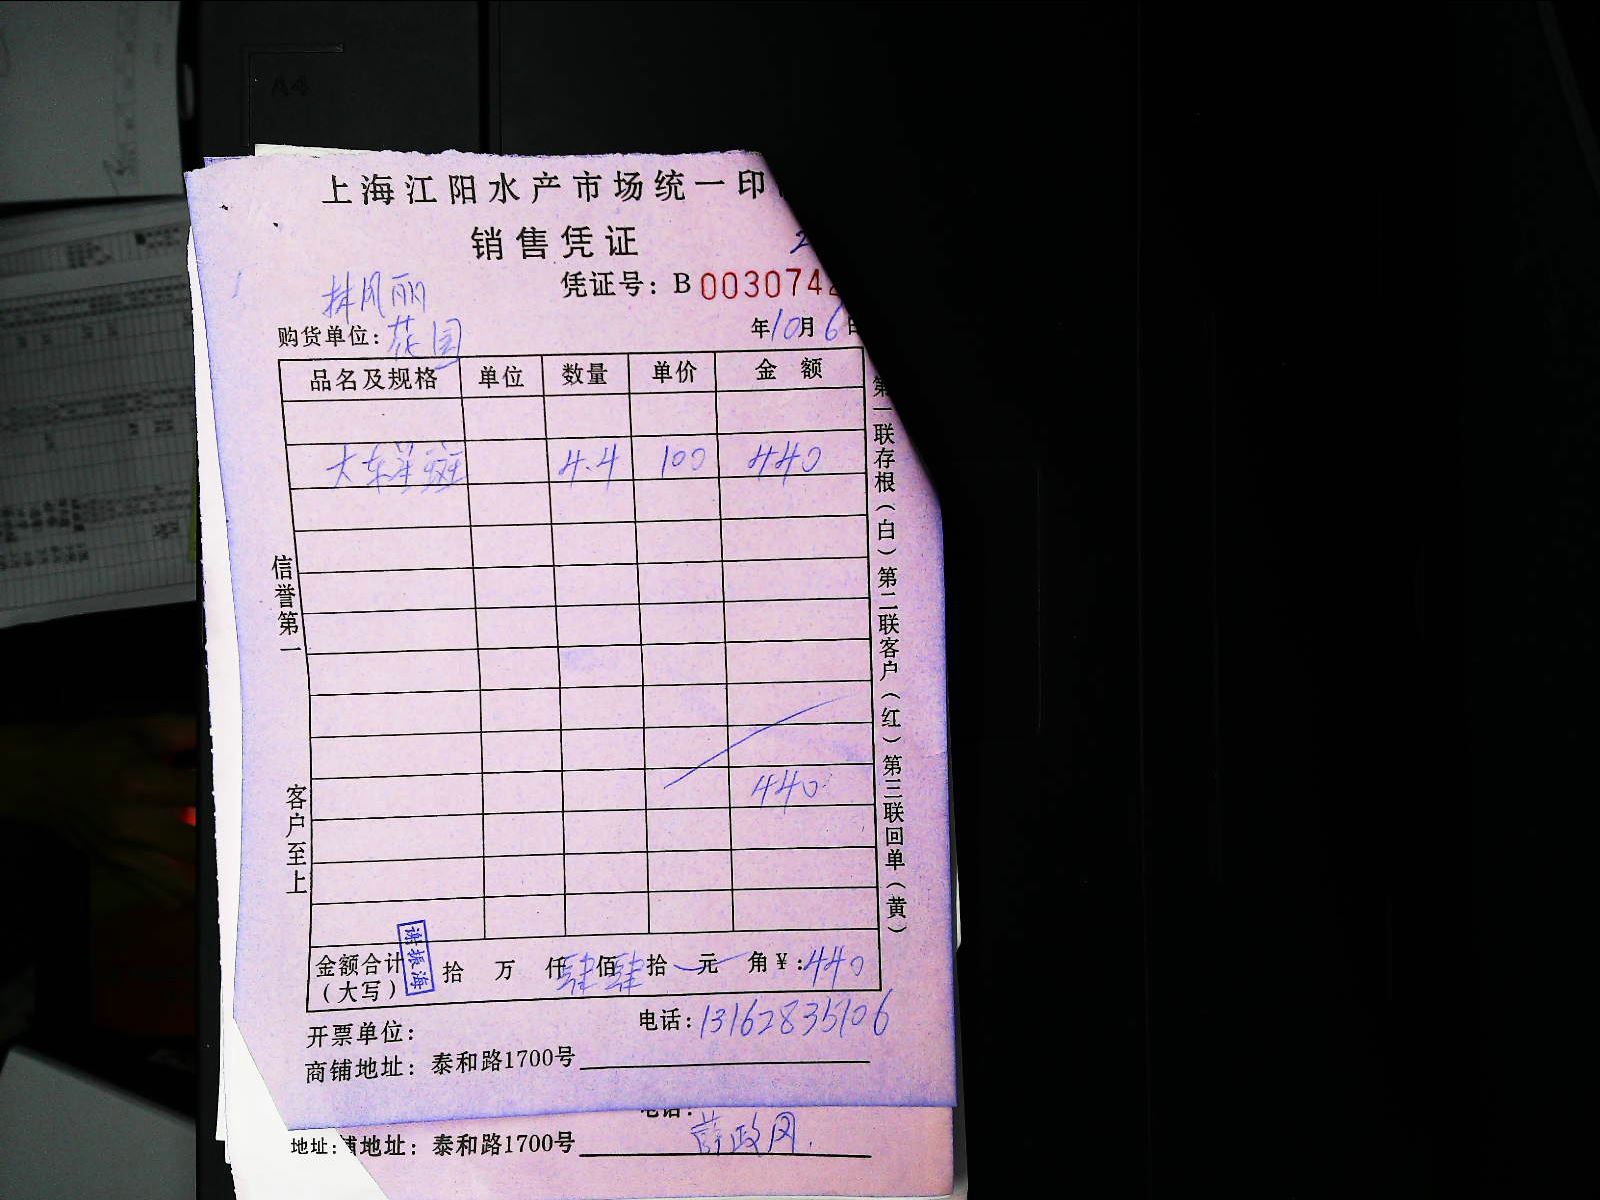 上海江阳水产市场统一印
销售凭证
凭证号：B 0030742
林凤丽
购货单位：花园
年10月6日
品名及规格 单位 数量 单价 金额
大东星斑 4.4 100 440
440
信誉第一
客户至上
第一联存根（白）第二联客户（红）第三联回单（黄）
金额合计（大写） 拾 万 仟肆佰肆拾 元 角￥：440
谢振海
开票单位： 电话：13162835106
商铺地址：泰和路1700号
电话：
地址：铺地址：泰和路1700号